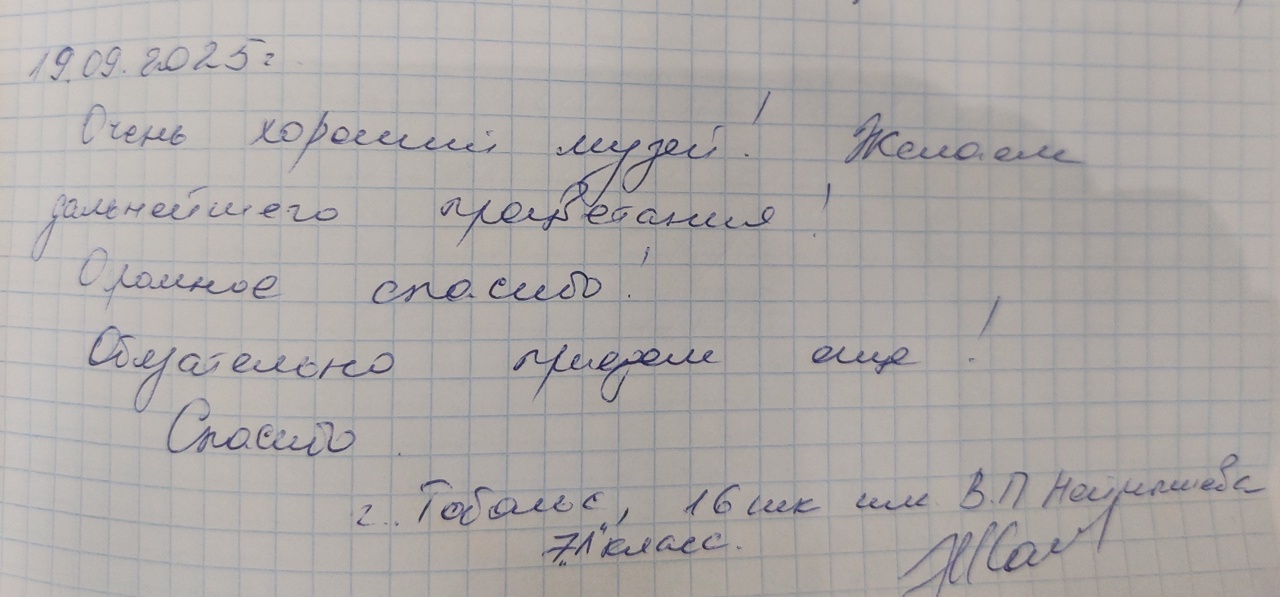 19.09.2025г.
Очень хороший музей! Желаем
дальнейшего процветания!
Огромное спасибо!
Обязательно придем еще!
Спасибо.
г. Тобольс, 16 шк им. В.П Неймышева
класс.